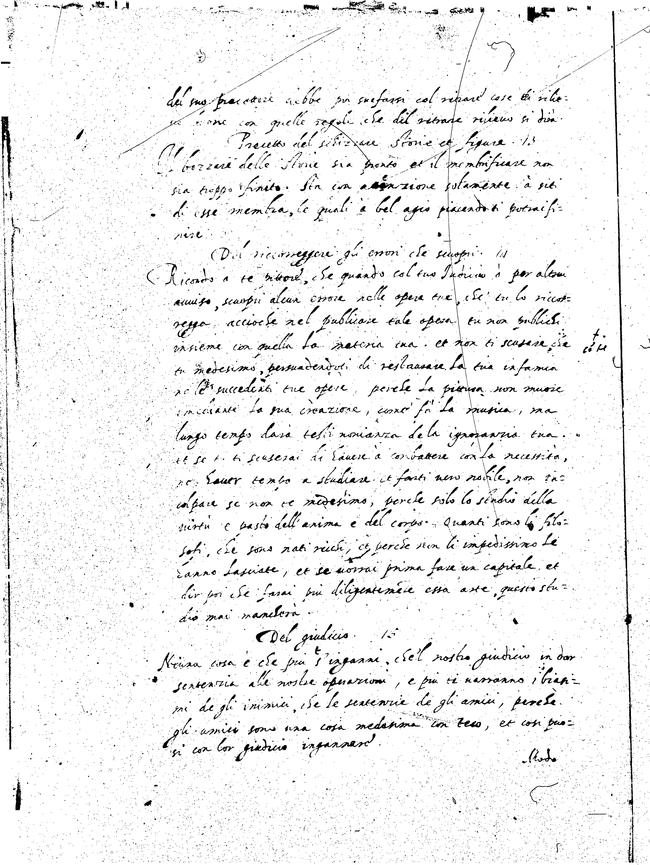 del suo precettore debbe poi suefarsi col ritrare cose di rilie-
vo bone con quelle regole che del ritrare rilievo si dira
Precetto del schizzare storie et figure. 13
Il bozzare delle storie sia pronto et il membrificare non
sia troppo finito. Sta con attenzione solamente à siti
di esse membra, le quali à bel agio piacendoti potrai fi-
nire.
Del ricorreggere gli errori che scuopri. 14
Ricordo a te pittore, che quando col tuo Iudicio ò per altrui
avviso, scuopri alcun errore nelle opere tue, che tu lo ricor-
regga, accioche nel publicare tale opera tu non publichi
insieme con quella la materia tua. et non ti scusare, che
tu medesimo, persuadendoti di restaurare la tua infamia
nelle succedenti tue opere, perche la pittura non muore
imediante la sua creazione, come fà la musica, ma
lungo tempo darà testimonianza dela ignoranzia tua.
et se ti scuserai di havere à conbattere con la necessita,
ne haver tempo a studiare et farti vero nobile, non in-
colpare se non te medesimo, perche solo lo studio della
virtu e pasto dell'anima e del corpo. Quanti sono li filo-
sofi, che sono nati richi, et perche non li impedissino le
hanno lasciate, et se vorrai prima fare un capitale et
dir poi che farai piu diligentemente essa arte, questo stu-
dio mai mancherà.
Del giudicio. 15
Niuna cosa è che più s'inganni, che'l nostro giudicio in dar
sentenzia alle nostre operazioni, e più ti varranno i biasi-
mi de gli inimici, che le sentenzie de gli amici, perche
gli amici sono una cosa medesima con teco, et cosi puo-
si con lor giudicio ingannare.
Modo